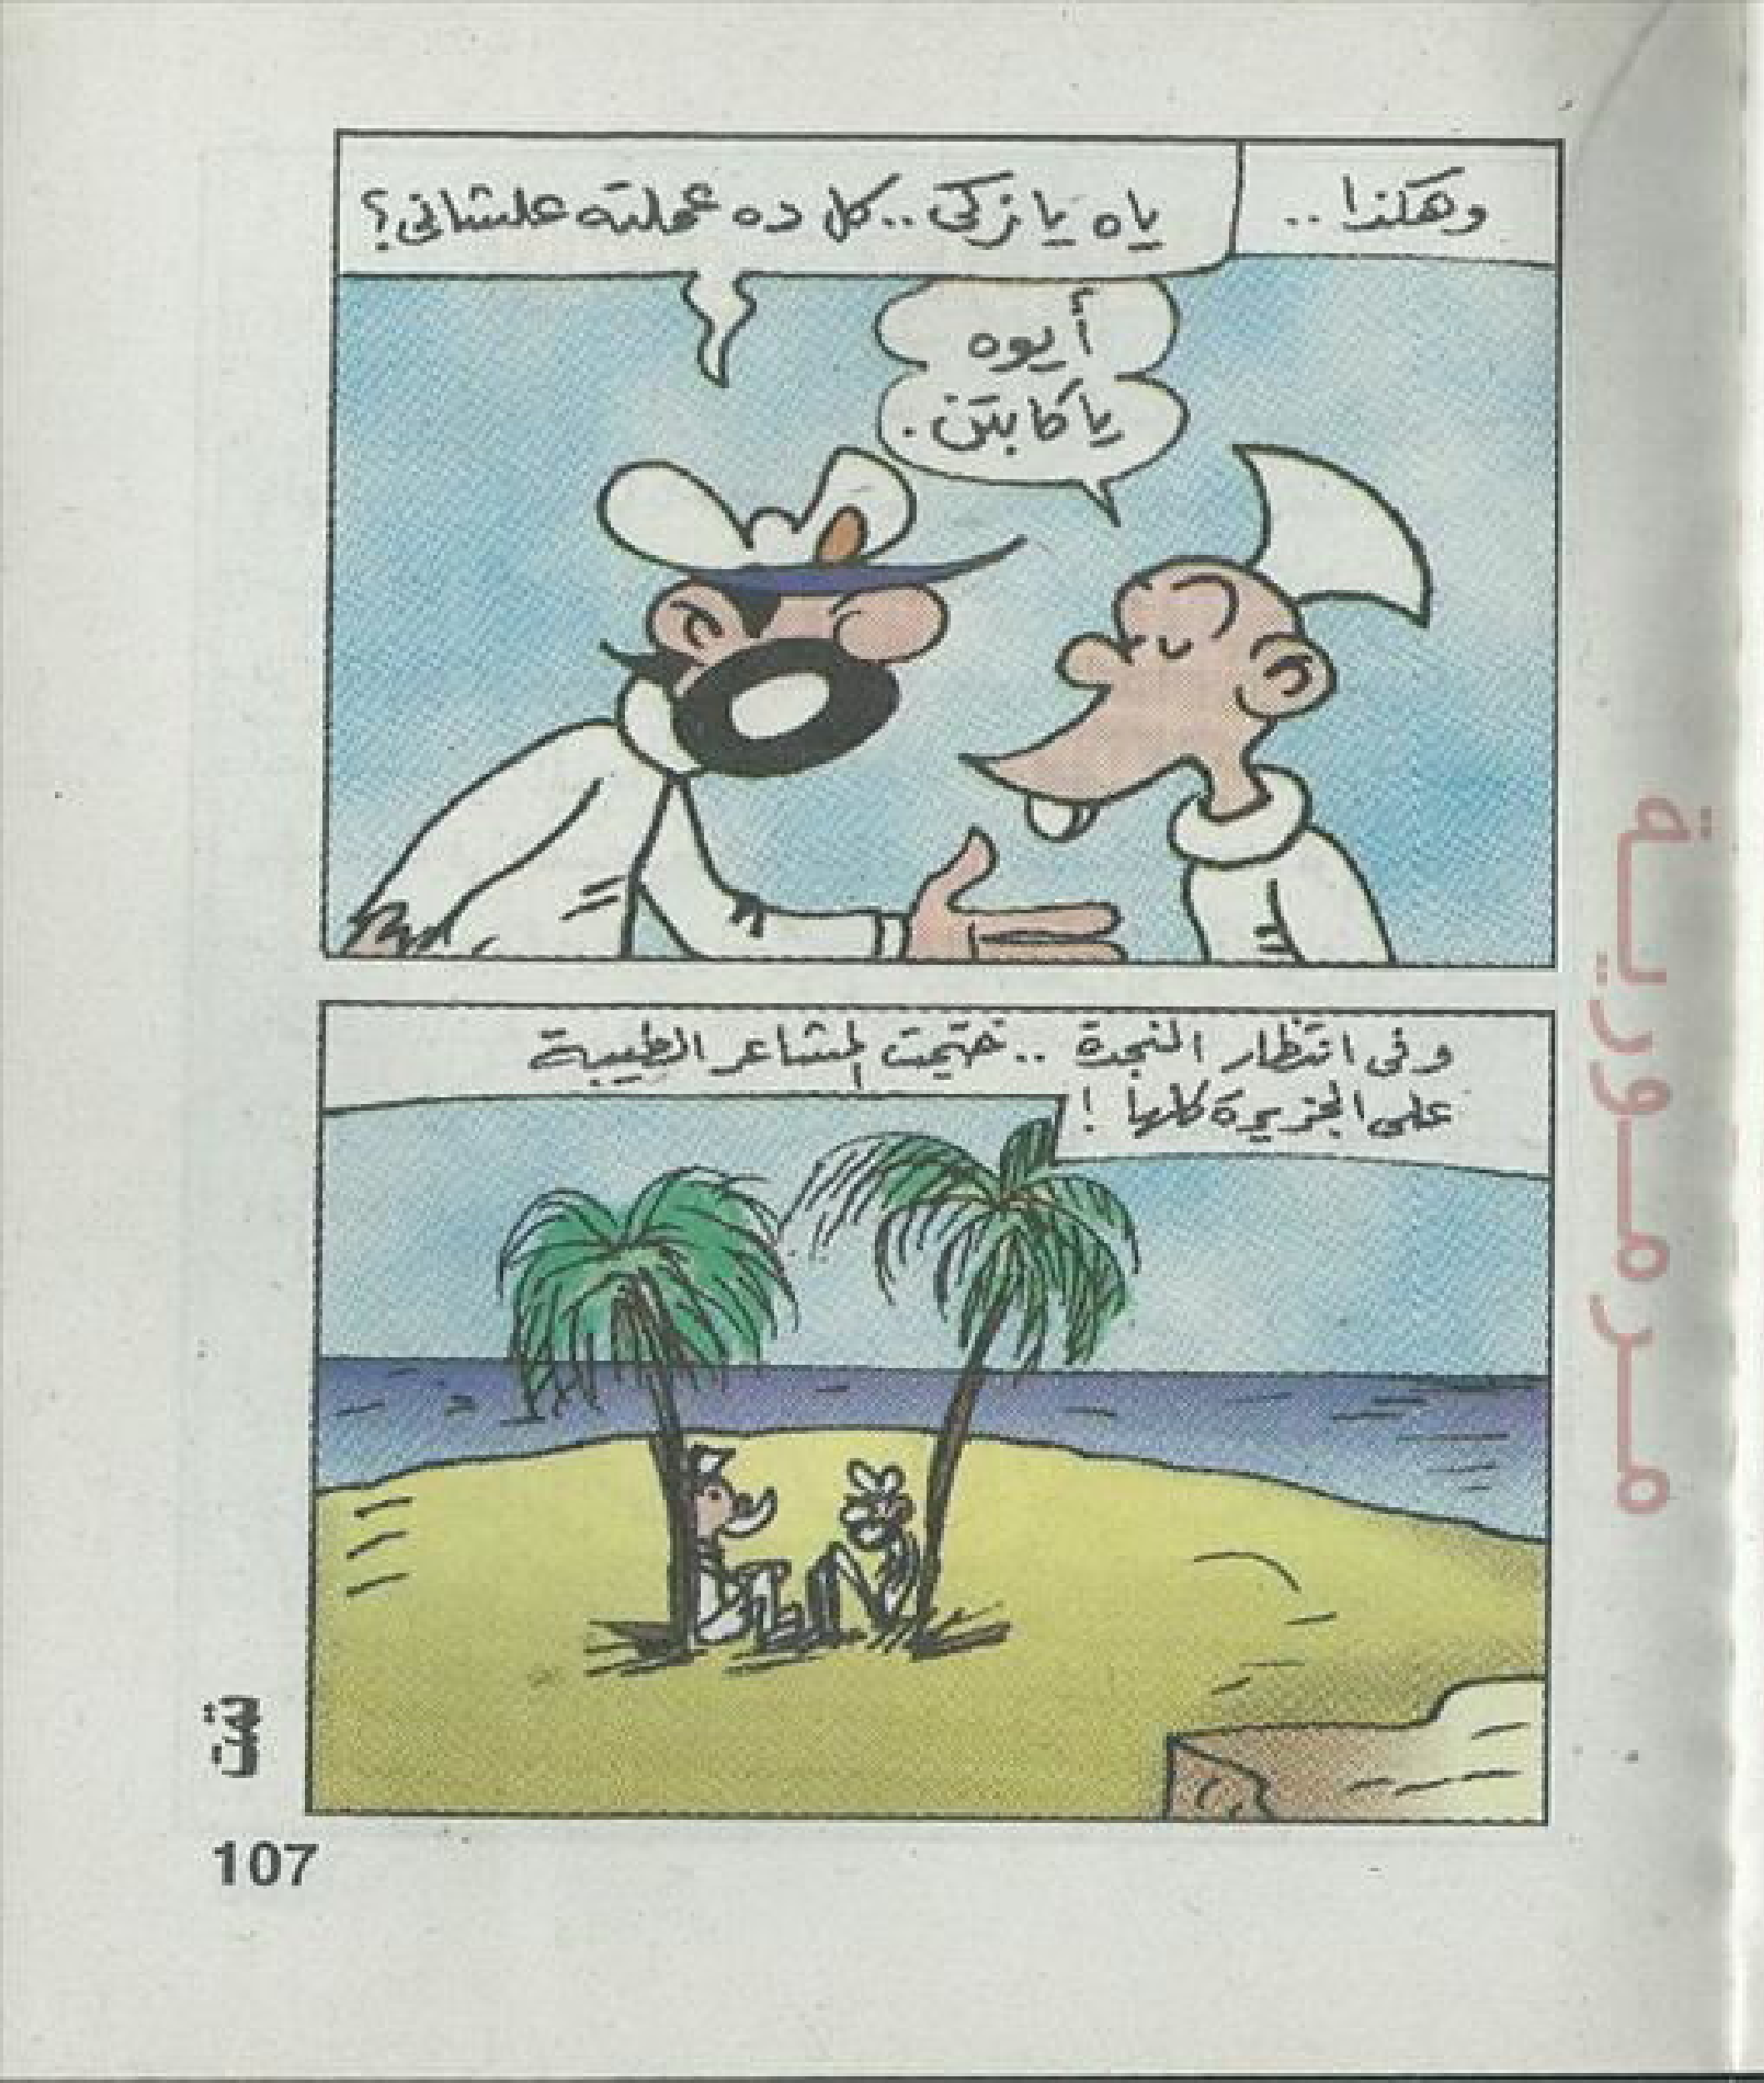 وهكذا ..
ياه يا زكى .. كل ده عملته علشانى ؟
أيوه
يا كابتن .
وفى انتظار النجدة .. خيمت المشاعر الطيبة
على الجزيرة كلها !
مرمورية
107